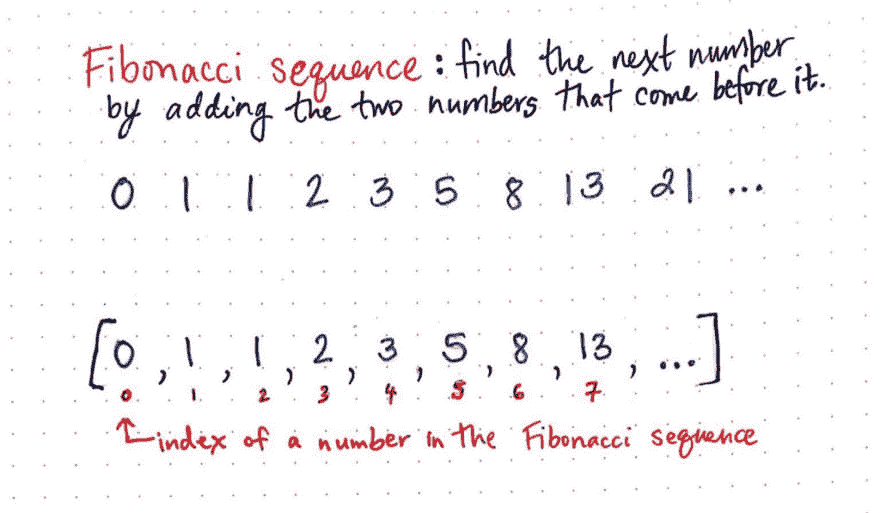 Fibonacci sequence : find the next number
by adding the two numbers that come before it.
0 1 1 2 3 5 8 13 21 ...
[0, 1, 1, 2, 3, 5, 8, 13, ...]
0 1 2 3 4 5 6 7
index of a number in the Fibonacci sequence